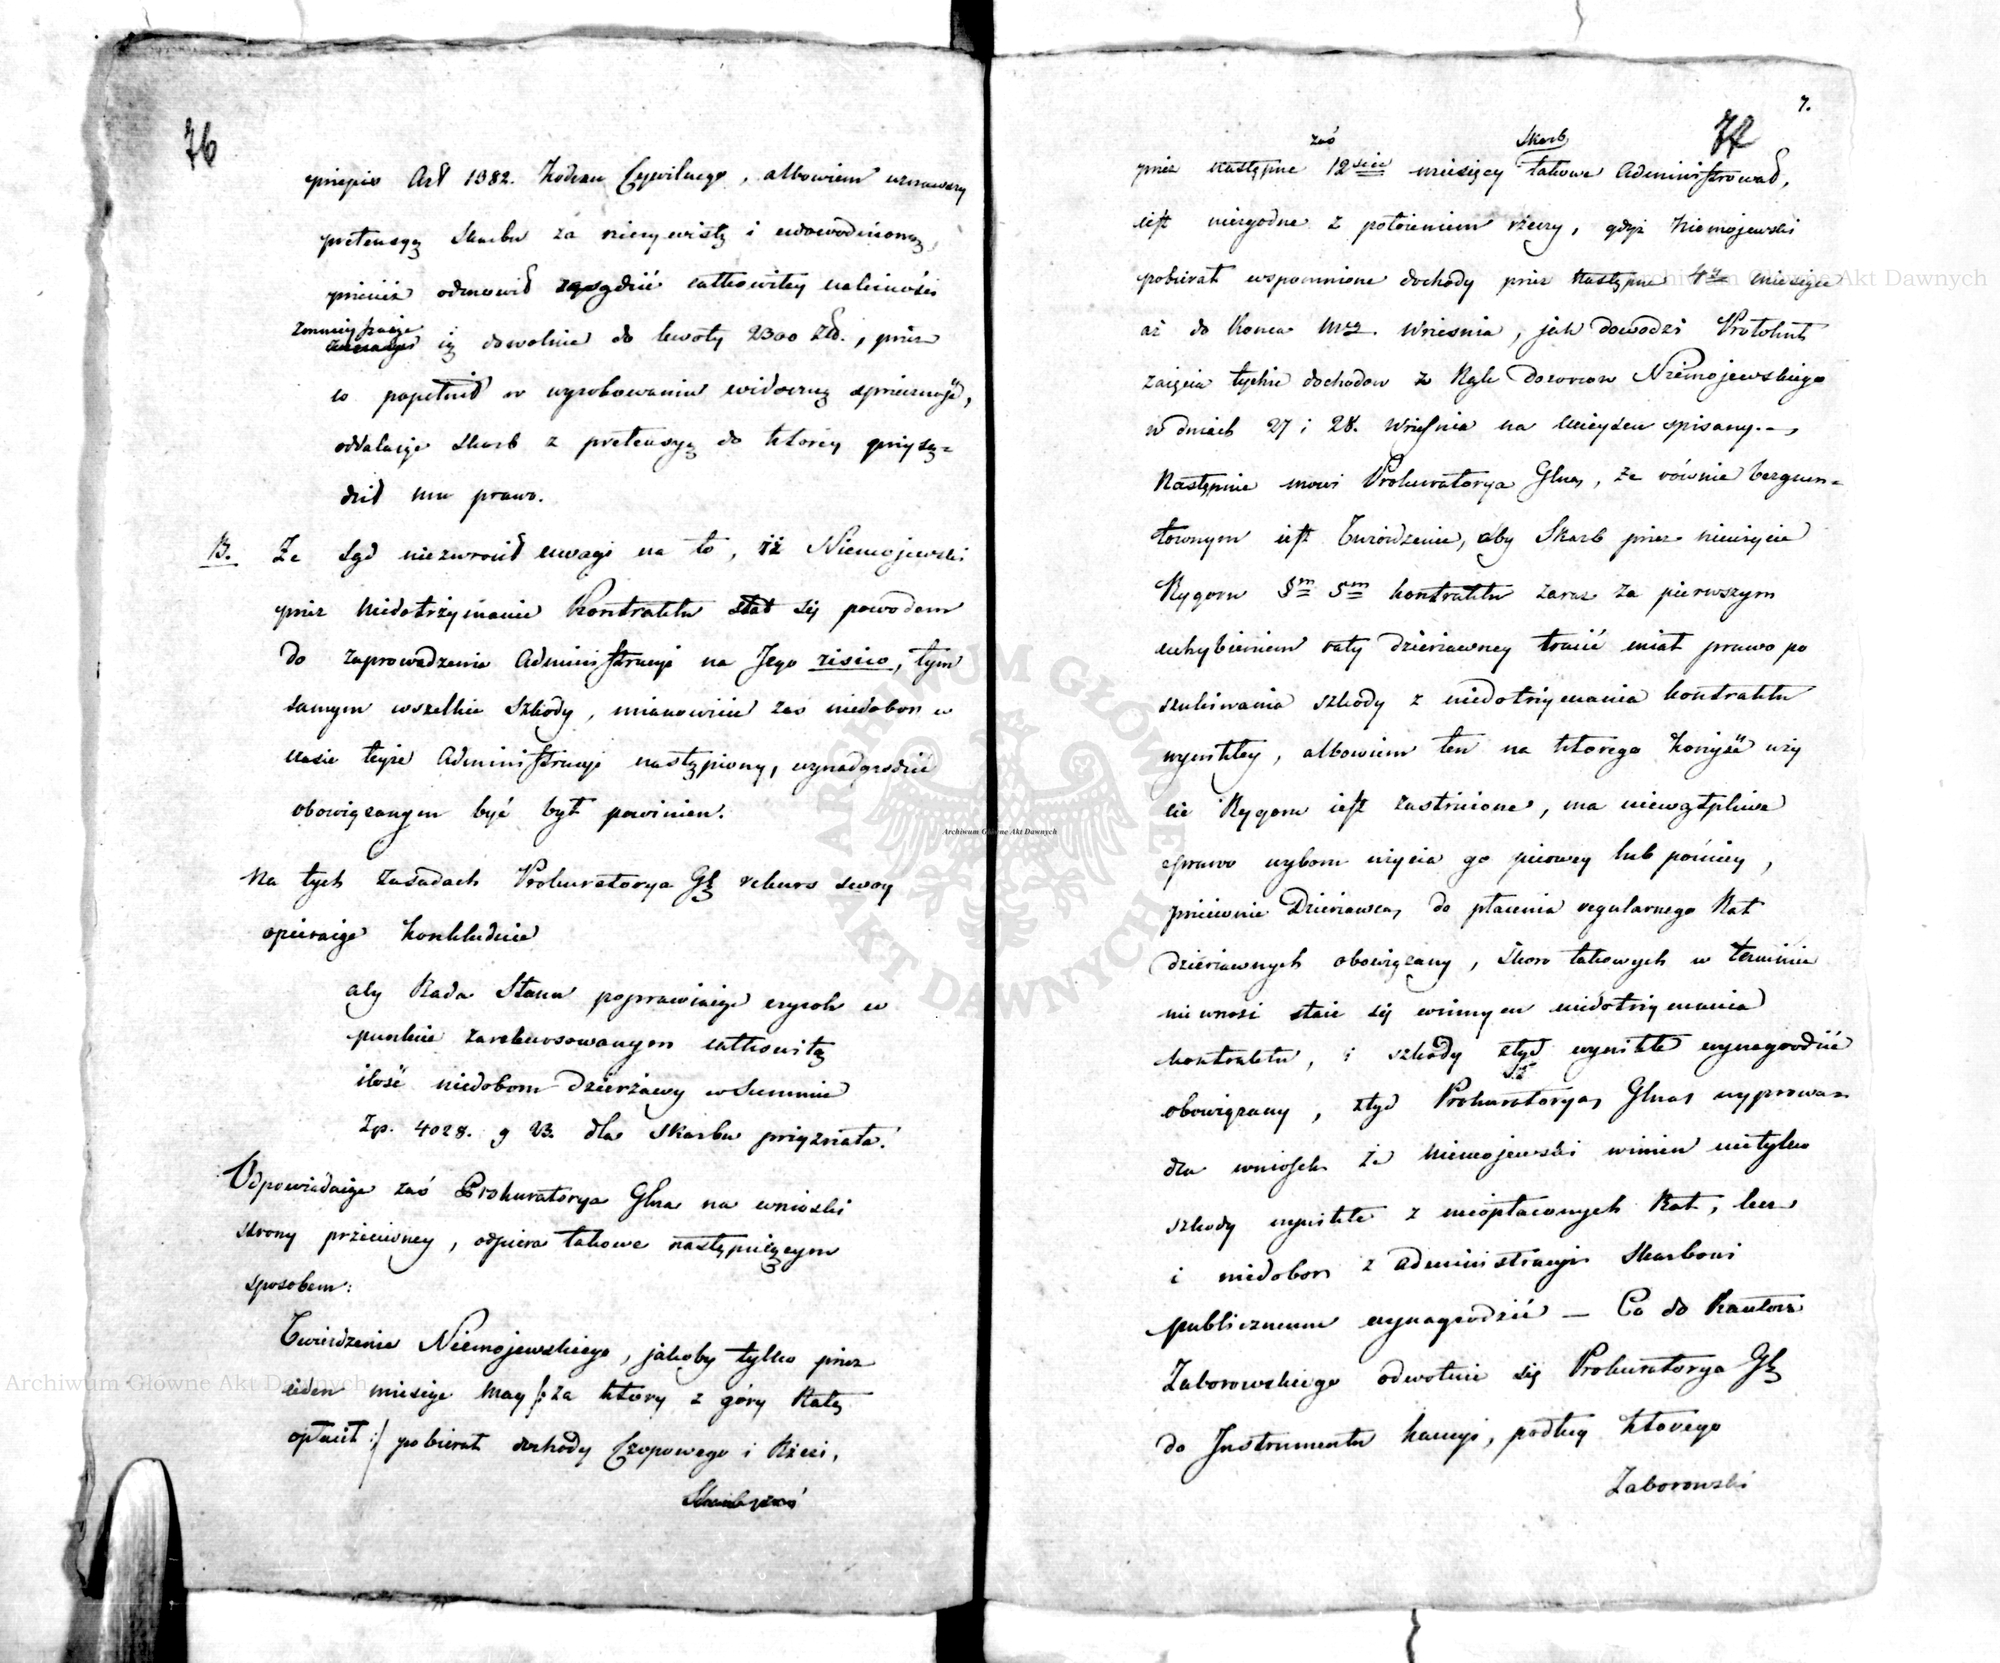 76
przepis Art 1382. Kodexu Cywilnego, albowiem uznawszy
pretensyą Skarbu za rzeczywistą i udowodnioną,
przecież odmowił zagrodzić całkowitey należności
zmnieyszaiąc
ią dowolnie do kwoty 2300 Złł., przez
co popełnił w wyrokowaniu widoczną sprzeczność,
oddalaiąc Skarb z pretensyą do ktorey przysą=
dził mu prawo.
B. Że Sąd niezwrocił uwagi na to, iż Niemojewski
przez niedotrzymanie Kontraktu stał się powodem
do zaprowadzenia Administracyi na Jego risico, tym
samym wszelkie Szkody, mianowicie zaś niedobor w
czasie teyże Administracyi nastąpiony, wynadgrodzić
obowiązanym być był powinien.
Na tych zasadach Prokuratorya Gł rekurs swoy
opieraiąc konkluduie
aby Rada Stanu poprawiaiąc wyrok w
punkcie zarekursowanym całkowitą
ilość niedoboru Dzierżawy w Summie
Zp. 4028. g 23. dla Skarbu przyznała.
Odpowiadaiąc zaś Prokuratorya Głna na wnioski
strony przeciwney, odpiera takowe następuiącym
sposobem:
Twierdzenie Niemojewskiego, jakoby tylko przez
ieden miesiąc May /: za ktory z góry Ratę
opłacił :/ pobierał dochody Czopowego i Rzezi,
Skarb zaś
7.
77
zaś Skarb
przez następne 12ście miesięcy takowe Administrował,
iest niezgodne z położeniem rzeczy, gdyż Niemojewski
pobierał wspomnione dochody przez następne 4ry miesiące
aż do końca Mca. Września, jak dowodzi Protokuł
zaięcia tychże dochodow z Rąk dozorcow Niemojewskiego
w dniach 27 i 28. Września na mieyscu spisany.
Następnie mowi Prokuratorya Głna, że równie bezgrun=
townym iest Twierdzenie, aby Skarb przez nieużycie
Rygoru §m 5m kontraktu zaraz za pierwszym
uchybieniem raty dzierżawney tracić miał prawo po
szukiwania szkody z niedotrzymania kontraktu
wynikłey, albowiem ten na ktorego korzyść uży
cie Rygoru iest zastrzeżone, ma niewątpliwe
prawo wyboru użycia go pierwey lub poźniey,
przeciwnie Dzierżawca, do płacenia regularnego Rat
dzierżawnych obowiązany, skoro takowych w terminie
nie wnosi staie się winnym niedotrzymania
kontraktu, i szkody ztąd wynikłe wynagrodzić
obowiązany, ztąd Prokuratorya Głna wyprowa=
dza wniosek że Niemojewski winien nietylko
szkody wynikłe z nieopłaconych Rat, lecz
i niedobor z Administracyi Skarbowi
publicznemu wynagrodzić — Co do Kaucyi
Zaborowskiego odwołuie się Prokuratorya Gł
do Instrumentu kaucyi, podług ktorego
Zaborowski